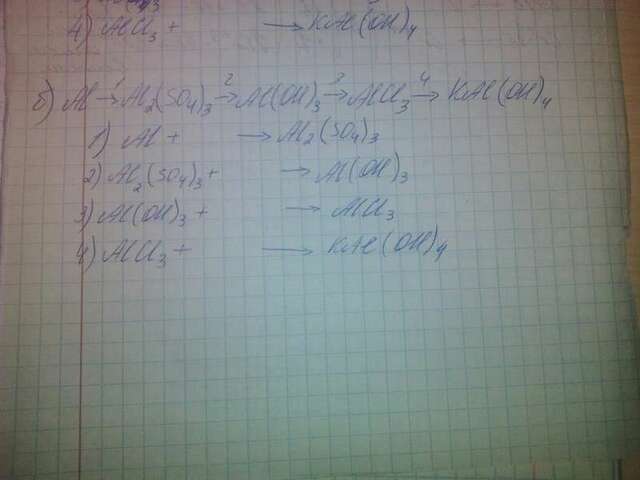 4) AlCl₃ + → KAl(OH)₄
б) Al →¹ Al₂(SO₄)₃ →² Al(OH)₃ →³ AlCl₃ →⁴ KAl(OH)₄
1) Al + → Al₂(SO₄)₃
2) Al₂(SO₄)₃ + → Al(OH)₃
3) Al(OH)₃ + → AlCl₃
4) AlCl₃ + → KAl(OH)₄